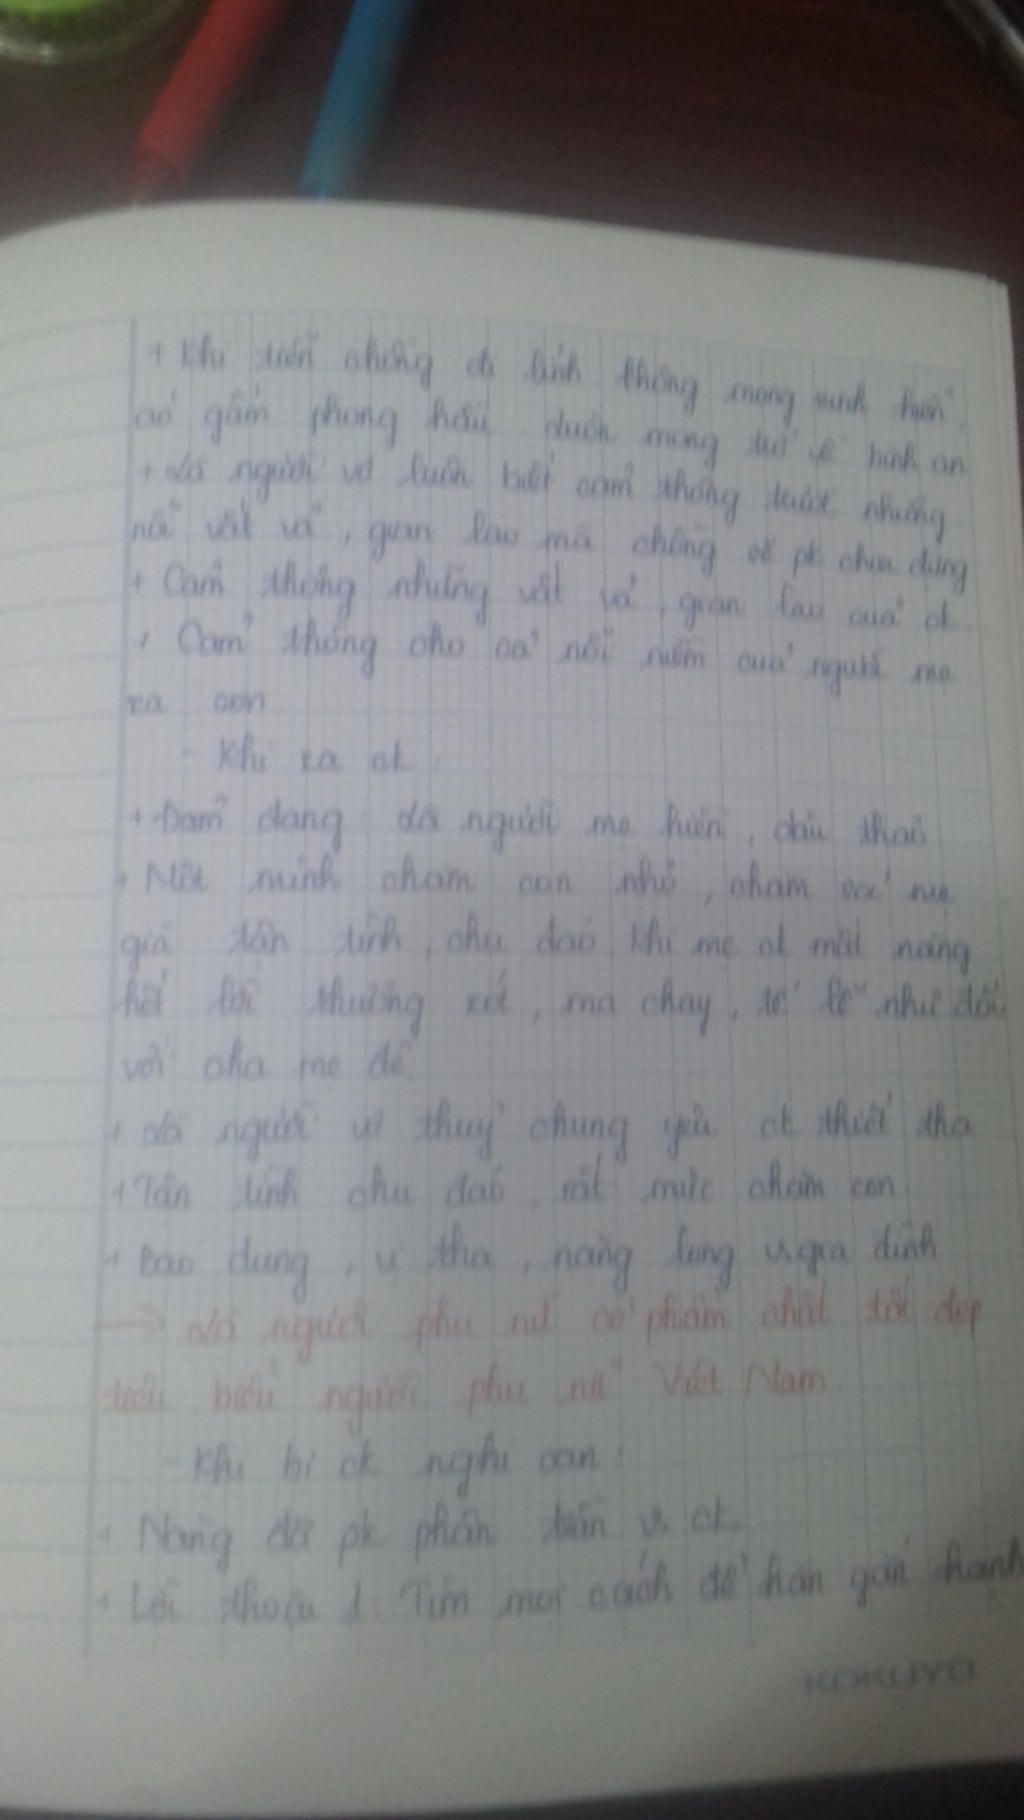 + Khi tiễn chồng đi lính không mong vinh hiển,
áo gấm phong hầu mong trở về bình an
+ Là người vợ luôn biết cảm thông trước những
nỗi vất vả, gian lao mà chồng sẽ pk chịu đựng
+ Cảm thông những vất vả, gian lao của ck
+ Cảm thông cho cả nỗi niềm của người mẹ
xa con
- Khi xa ck:
+ Đảm đang: là người mẹ hiền, dâu thảo
+ Một mình chăm con nhỏ, chăm sóc mẹ
già tận tình, chu đáo. Khi mẹ ck mất nàng
hết lời thương xót, ma chay, tế lễ như đối
với cha mẹ đẻ
+ Là người vợ thuỷ chung yêu ck thiết tha
+ Tận tình chu đáo, rất mực chăm con
+ Bao dung, vị tha, nặng lòng vs gia đình
→ Là người phụ nữ có phẩm chất tốt đẹp
tiêu biểu người phụ nữ Việt Nam.
- Khi bị ck nghi oan:
+ Nàng đã pk phân trần vs ck
+ Lời thoại 1: Tìm mọi cách để hàn gắn hạnh
KOKUYO